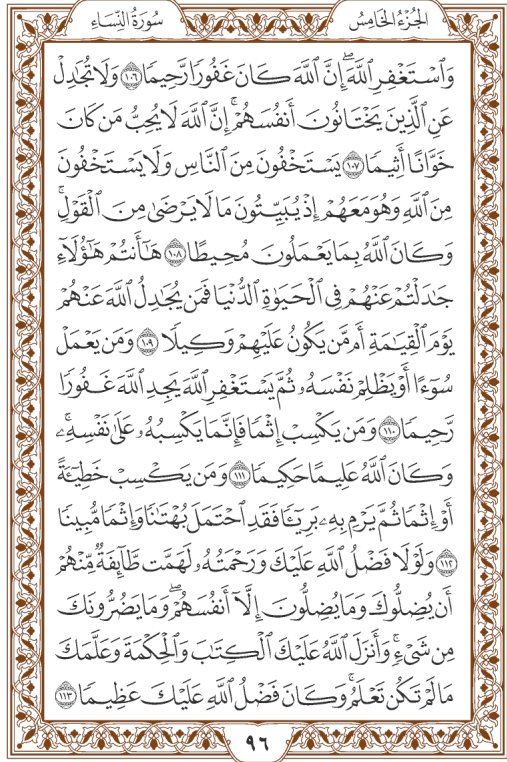 الجُزْءُ الخَامِسُ
سُورَةُ النِّسَاءِ
وَٱسۡتَغۡفِرِ ٱللَّهَۖ إِنَّ ٱللَّهَ كَانَ غَفُورٗا رَّحِيمٗا ١٠٦ وَلَا تُجَٰدِلۡ
عَنِ ٱلَّذِينَ يَخۡتَانُونَ أَنفُسَهُمۡۚ إِنَّ ٱللَّهَ لَا يُحِبُّ مَن كَانَ
خَوَّانًا أَثِيمٗا ١٠٧ يَسۡتَخۡفُونَ مِنَ ٱلنَّاسِ وَلَا يَسۡتَخۡفُونَ
مِنَ ٱللَّهِ وَهُوَ مَعَهُمۡ إِذۡ يُبَيِّتُونَ مَا لَا يَرۡضَىٰ مِنَ ٱلۡقَوۡلِۚ
وَكَانَ ٱللَّهُ بِمَا يَعۡمَلُونَ مُحِيطًا ١٠٨ هَٰٓأَنتُمۡ هَٰٓؤُلَآءِ
جَٰدَلۡتُمۡ عَنۡهُمۡ فِي ٱلۡحَيَوٰةِ ٱلدُّنۡيَا فَمَن يُجَٰدِلُ ٱللَّهَ عَنۡهُمۡ
يَوۡمَ ٱلۡقِيَٰمَةِ أَم مَّن يَكُونُ عَلَيۡهِمۡ وَكِيلٗا ١٠٩ وَمَن يَعۡمَلۡ
سُوٓءًا أَوۡ يَظۡلِمۡ نَفۡسَهُۥ ثُمَّ يَسۡتَغۡفِرِ ٱللَّهَ يَجِدِ ٱللَّهَ غَفُورٗا
رَّحِيمٗا ١١٠ وَمَن يَكۡسِبۡ إِثۡمٗا فَإِنَّمَا يَكۡسِبُهُۥ عَلَىٰ نَفۡسِهِۦۚ
وَكَانَ ٱللَّهُ عَلِيمًا حَكِيمٗا ١١١ وَمَن يَكۡسِبۡ خَطِيٓـَٔةً
أَوۡ إِثۡمٗا ثُمَّ يَرۡمِ بِهِۦ بَرِيٓـٔٗا فَقَدِ ٱحۡتَمَلَ بُهۡتَٰنٗا وَإِثۡمٗا مُّبِينٗا
١١٢ وَلَوۡلَا فَضۡلُ ٱللَّهِ عَلَيۡكَ وَرَحۡمَتُهُۥ لَهَمَّت طَّآئِفَةٞ مِّنۡهُمۡ
أَن يُضِلُّوكَ وَمَا يُضِلُّونَ إِلَّآ أَنفُسَهُمۡۖ وَمَا يَضُرُّونَكَ
مِن شَيۡءٖۚ وَأَنزَلَ ٱللَّهُ عَلَيۡكَ ٱلۡكِتَٰبَ وَٱلۡحِكۡمَةَ وَعَلَّمَكَ
مَا لَمۡ تَكُن تَعۡلَمُۚ وَكَانَ فَضۡلُ ٱللَّهِ عَلَيۡكَ عَظِيمٗا ١١٣
٩٦